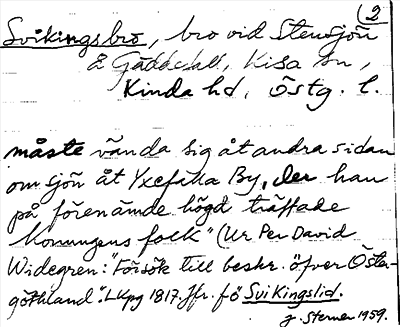 (2
Svikingsbro, bro vid Stensjön
å Gäddevall, Kisa sn,
Kinda hd, Östg. l.
måste vända sig åt andra sidan
om sjön åt Yxefälla By, der han
på förenämde högd träffade
Konungens folk" (Ur Per David
Widegren: "Försök till beskr. öfver Öster-
göthland". Lkpg 1817. Jfr. fö Svikingslid.
J. Sterner 1959.